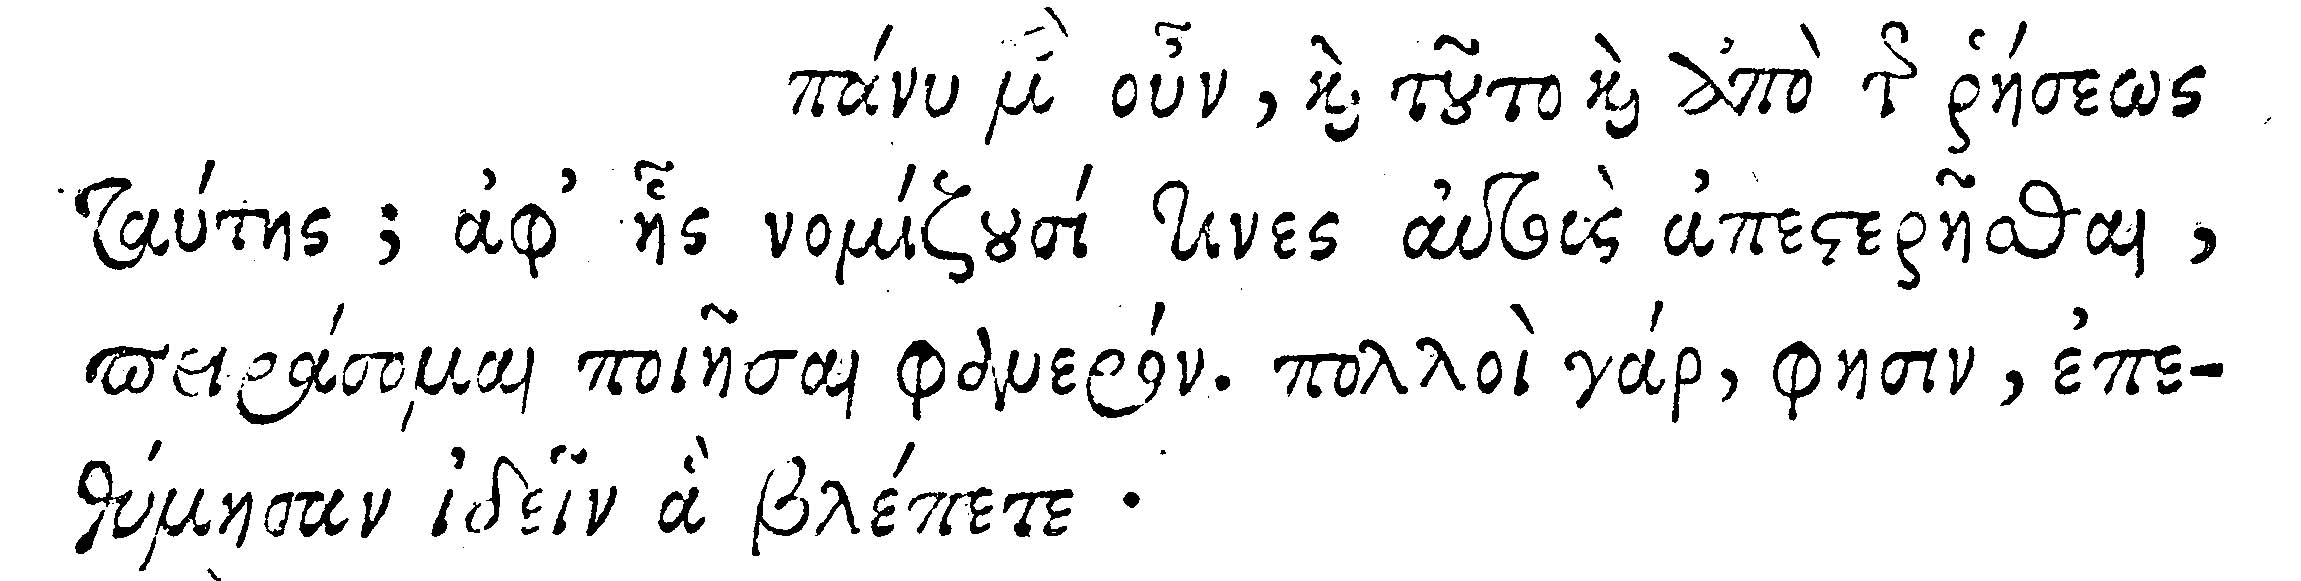 πάνυ μὲν οὖν, καὶ τοῦτο καὶ ἀπὸ τῆς ῥήσεως
ταύτης; ἀφ' ἧς νομίζουσί τινες αὐτοὺς ἀπεστερῆσθαι,
πειράσομαι ποιῆσαι φανερόν. πολλοὶ γάρ, φησιν, ἐπε-
θύμησαν ἰδεῖν ἃ βλέπετε.